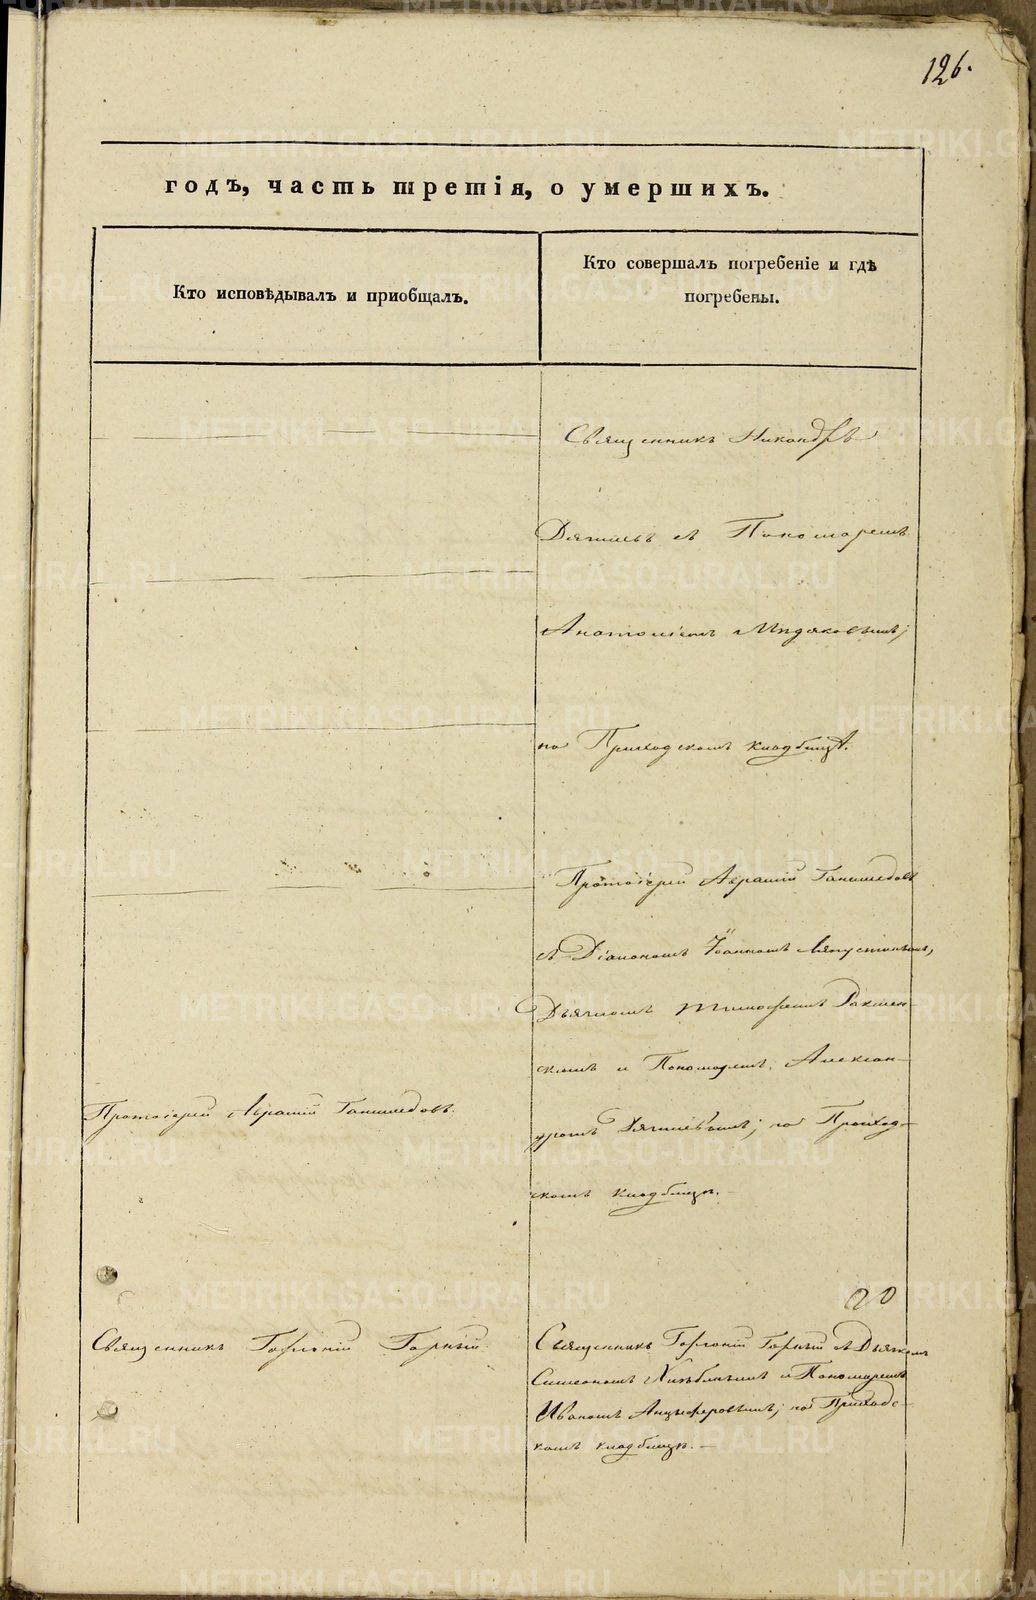 126.
годъ, часть третія, о умершихъ.
Кто исповѣдывалъ и пріобщалъ.
Кто совершалъ погребеніе и гдѣ
погребены.
Священникъ Никандръ
съ Пономаремъ
Анатоліемъ
на Приходскомъ кладбищѣ.
Протоіерей Авраамій
съ Діакономъ Іоанномъ
Дьячкомъ Тимофеемъ
скимъ и Пономаремъ Алексан-
дромъ на Приход-
скомъ кладбищѣ.
Протоіерей Авраамій
Священникъ Горный
20
Священникъ Горный съ Дьячкомъ
Симеономъ Хлѣбинымъ и Пономаремъ
Иваномъ Анцыферовымъ; на Приходс-
комъ кладбищѣ.
METRIKI.GASO-URAL.RU